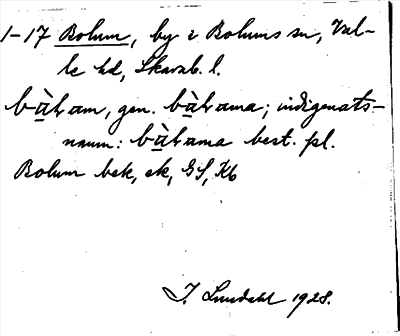 1-17 Bolum, by i Bolums sn, Val-
le hd, Skarab. l.
bàłam, gen. bàłama; indigenats-
namn: bàłama best. pl.
Bolum bek, ek, GS, Kb
I. Lundahl 1928.